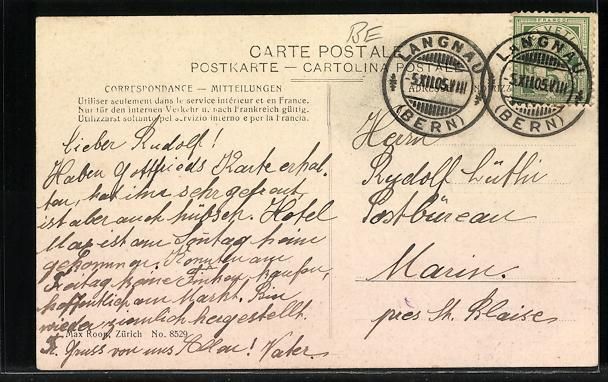 BE
CARTE POSTALE
POSTKARTE — CARTOLINA POSTALE
CORRESPONDANCE — MITTEILUNGEN
Utiliser seulement dans le service intérieur et en France.
Nur für den internen Verkehr u. nach Frankreich gültig.
Utilizzarsi soltanto pel servizio interno e per la Francia.
LANGNAU
-5.XII.05.VIII
(BERN)
LANGNAU
-5.XII.05.VIII
(BERN)
FRANCO
Lieber Rudolf!
Haben Gottfrieds Karte erhal-
ten, hat ihn sehr gefreut,
ist aber auch hübsch. Hotel
ist am Sonntag heim
gekommen. Konnten am
Freitag keine kaufen,
hoffentlich am Markt. Bin
wieder ziemlich hergestellt.
Gruss von uns Allen! Vater.
Max Roon, Zürich No. 8529
Herrn
Rudolf Lüthi
Postbüreau
Marin.
près St. Blaise